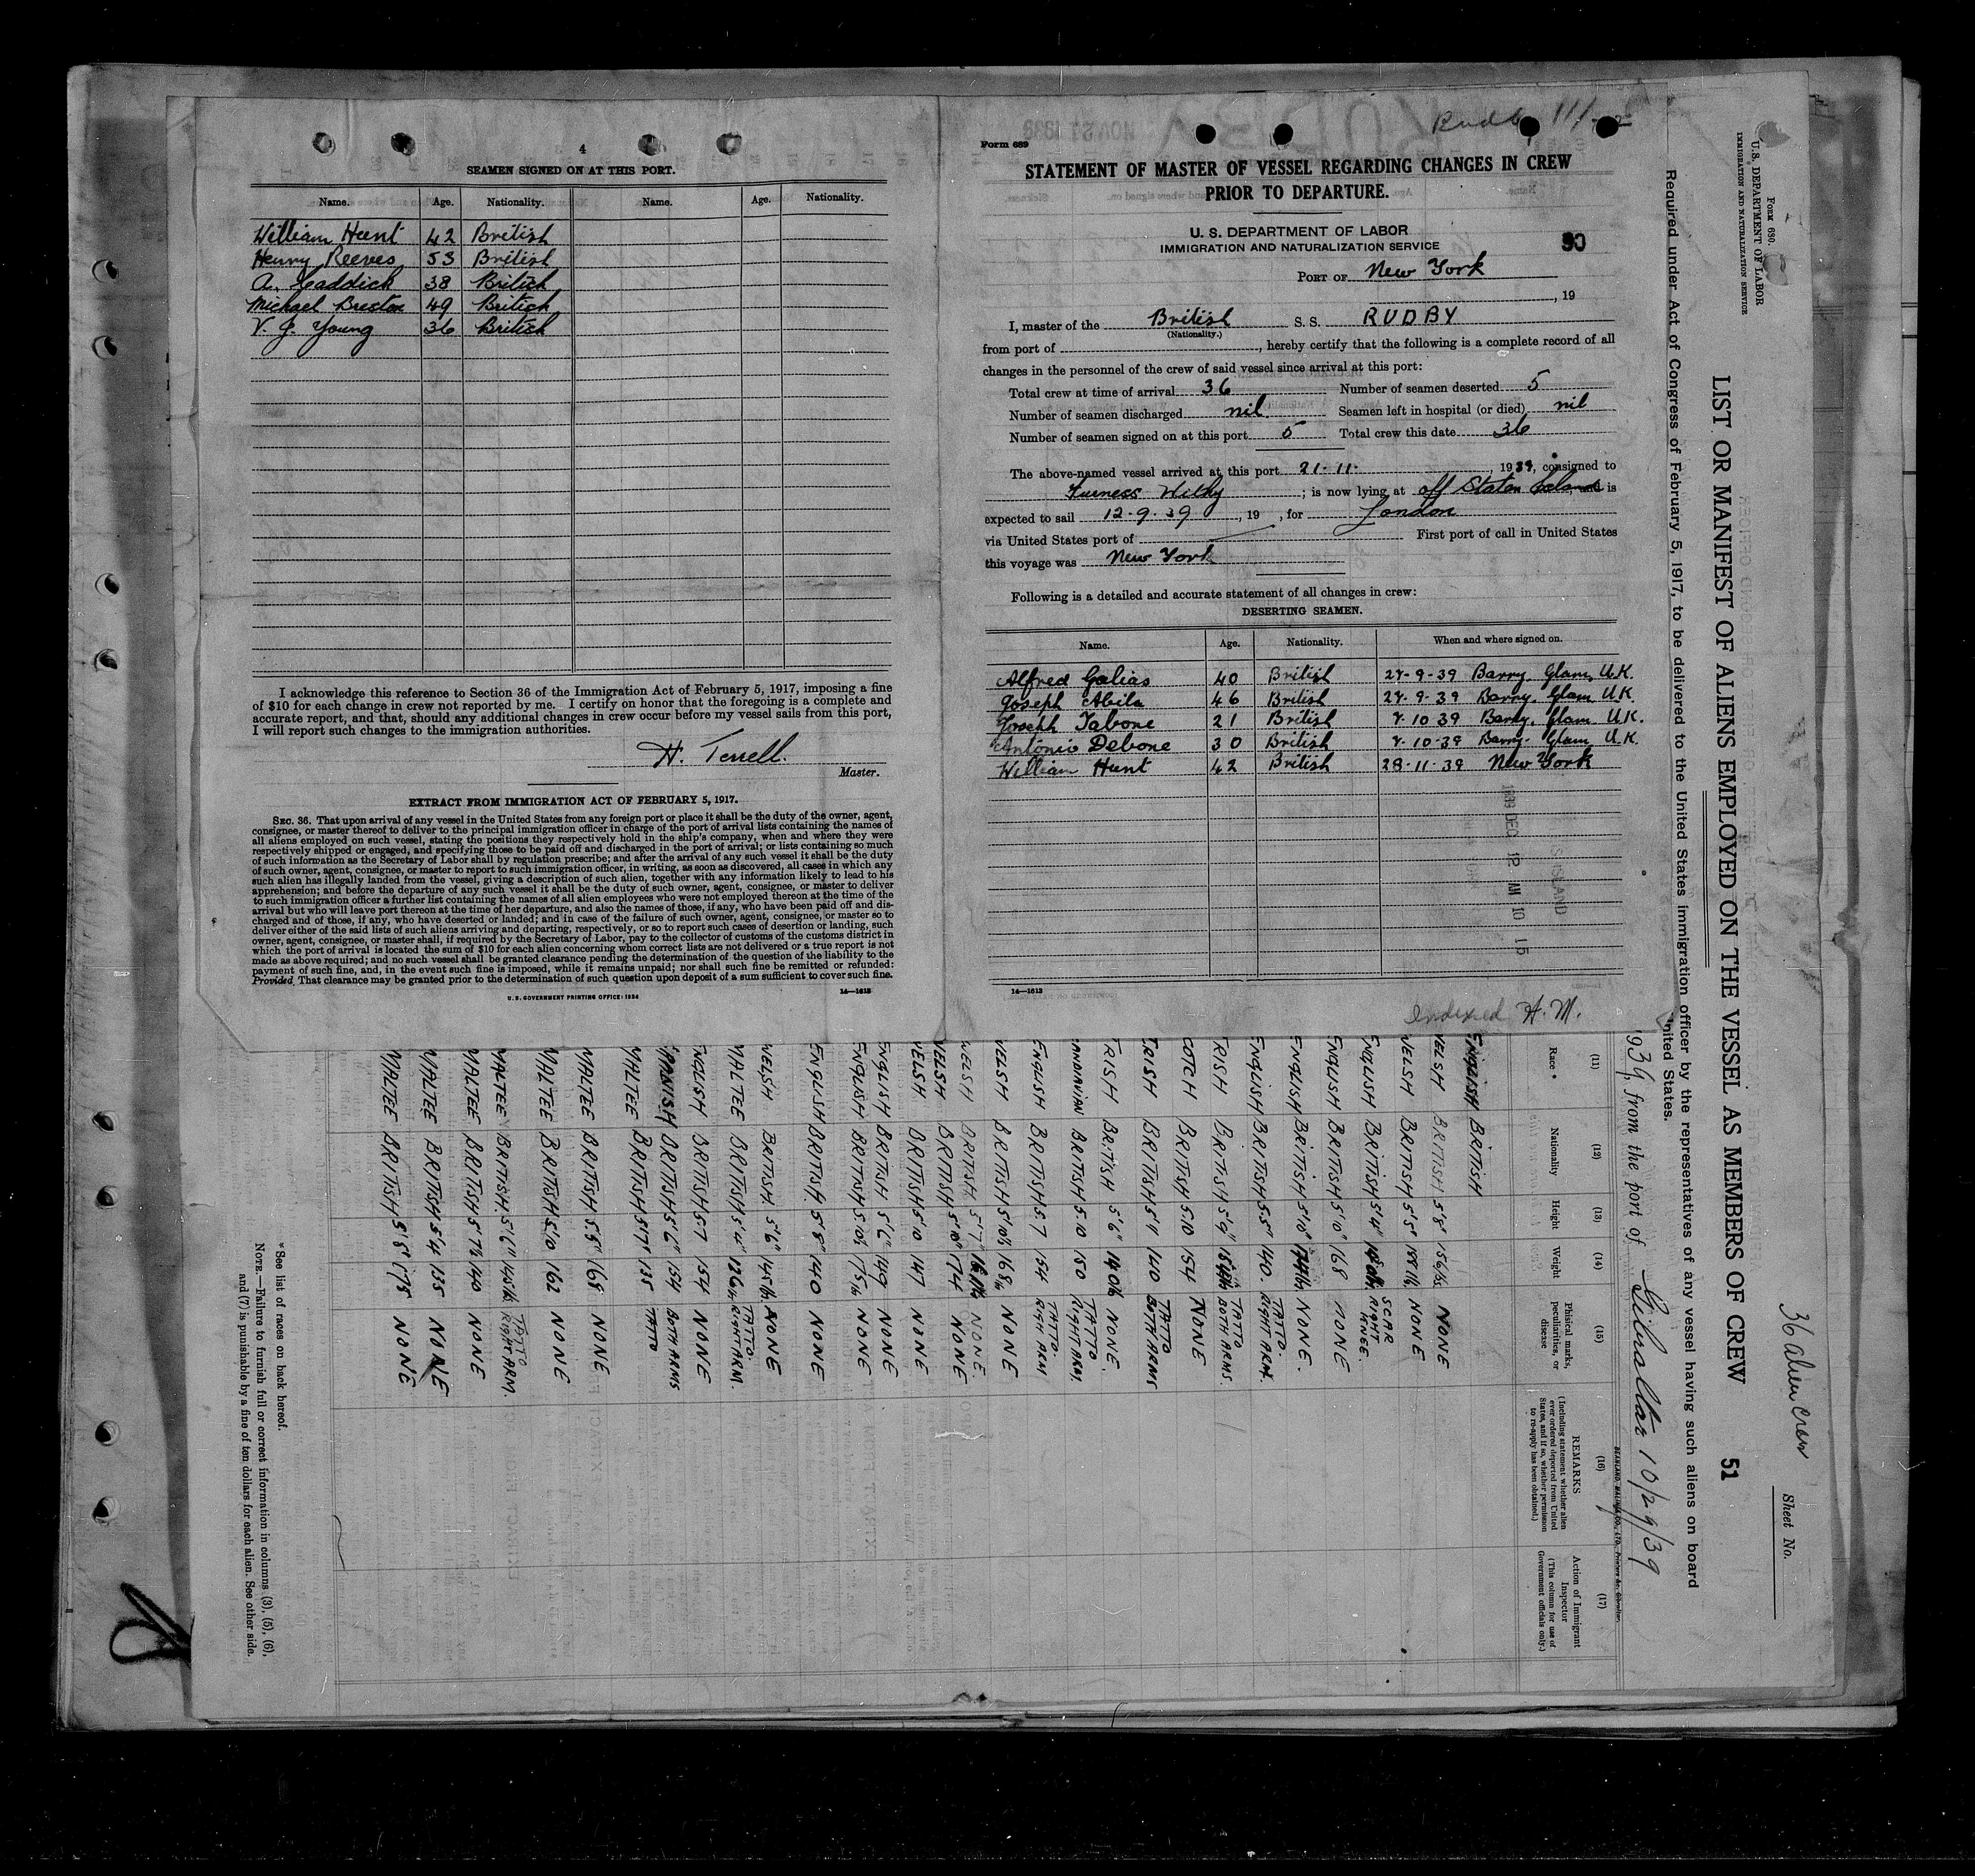 4
SEAMEN SIGNED ON AT THIS PORT.
Name. Age. Nationality. Name. Age. Nationality.
William Hunt 42 British
Henry Reeves 53 British
A. Caddick 38 British
Michael Breston 49 British
V. J. Young 36 British
I acknowledge this reference to Section 36 of the Immigration Act of February 5, 1917, imposing a fine
of $10 for each change in crew not reported by me. I certify on honor that the foregoing is a complete and
accurate report, and that, should any additional changes in crew occur before my vessel sails from this port,
I will report such changes to the immigration authorities.
H. Terrell.
Master.
EXTRACT FROM IMMIGRATION ACT OF FEBRUARY 5, 1917.
SEC. 36. That upon arrival of any vessel in the United States from any foreign port or place it shall be the duty of the owner, agent,
consignee, or master thereof to deliver to the principal immigration officer in charge of the port of arrival lists containing the names of
all aliens employed on such vessel, stating the positions they respectively hold in the ship's company, when and where they were
respectively shipped or engaged, and specifying those to be paid off and discharged in the port of arrival; or lists containing so much
of such information as the Secretary of Labor shall by regulation prescribe; and after the arrival of any such vessel it shall be the duty
of such owner, agent, consignee, or master to report to such immigration officer, in writing, as soon as discovered, all cases in which any
such alien has illegally landed from the vessel, giving a description of such alien, together with any information likely to lead to his
apprehension; and before the departure of any such vessel it shall be the duty of such owner, agent, consignee, or master to deliver
to such immigration officer a further list containing the names of all alien employees who were not employed thereon at the time of the
arrival but who will leave port thereon at the time of her departure, and also the names of those, if any, who have been paid off and dis-
charged and of those, if any, who have deserted or landed; and in case of the failure of such owner, agent, consignee, or master so to
deliver either of the said lists of such aliens arriving and departing, respectively, or so to report such cases of desertion or landing, such
owner, agent, consignee, or master shall, if required by the Secretary of Labor, pay to the collector of customs of the customs district in
which the port of arrival is located the sum of $10 for each alien concerning whom correct lists are not delivered or a true report is not
made as above required; and no such vessel shall be granted clearance pending the determination of the question of the liability to the
payment of such fine, and, in the event such fine is imposed, while it remains unpaid; nor shall such fine be remitted or refunded:
Provided, That clearance may be granted prior to the determination of such question upon deposit of a sum sufficient to cover such fine.
U. S. GOVERNMENT PRINTING OFFICE: 1934 14—1613
Form 689
STATEMENT OF MASTER OF VESSEL REGARDING CHANGES IN CREW
PRIOR TO DEPARTURE.
U. S. DEPARTMENT OF LABOR
IMMIGRATION AND NATURALIZATION SERVICE
90
PORT OF New York
, 19
I, master of the British S. S. RUDBY
(Nationality.)
from port of , hereby certify that the following is a complete record of all
changes in the personnel of the crew of said vessel since arrival at this port:
Total crew at time of arrival 36 Number of seamen deserted 5
Number of seamen discharged nil. Seamen left in hospital (or died) nil
Number of seamen signed on at this port 5 Total crew this date 36
The above-named vessel arrived at this port 21-11- , 1939, consigned to
Furness Withy ; is now lying at off Staten Island, and is
expected to sail 12-9-39 , 19 , for London
via United States port of First port of call in United States
this voyage was New York
Following is a detailed and accurate statement of all changes in crew:
DESERTING SEAMEN.
Name. Age. Nationality. When and where signed on.
Alfred Galias 40 British 27-9-39 Barry, Glam, U.K.
Joseph Abila 46 British 27-9-39 Barry, Glam U.K.
Joseph Tabone 21 British 7-10-39 Barry, Glam U.K.
Antonio Debone 30 British 7-10-39 Barry- Glam U.K.
William Hunt 42 British 28-11-39 New York
1939 DEC 12 AM 10 15
14—1613
Indexed H. M.
Form 680.
U. S. DEPARTMENT OF LABOR
IMMIGRATION AND NATURALIZATION SERVICE
36 alien crew
Sheet No.
LIST OR MANIFEST OF ALIENS EMPLOYED ON THE VESSEL AS MEMBERS OF CREW 51
Required under Act of Congress of February 5, 1917, to be delivered to the United States immigration officer by the representatives of any vessel having such aliens on board
nited States.
939, from the port of Gibraltar 10/29/39
(11) (12) (13) (14) (15) (16) (17)
Race * Nationality Height Weight Phisical marks, peculiarities, or disease REMARKS (Including statement whether alien ever ordered deported from United States, and if so, whether permission to re-apply has been obtained.) Action of Immigrant Inspector (This column for use of Government officials only.)
ENGLISH BRITISH
WELSH BRITISH 5'8" 156 lbs NONE
WELSH BRITISH 5'5" NONE
ENGLISH BRITISH 5'4" SCAR RIGHT KNEE.
ENGLISH BRITISH 5'10" 168 NONE
ENGLISH BRITISH 5'10" NONE.
ENGLISH BRITISH 5.5" 140. TATTO. RIGHT ARM.
IRISH BRITISH 5'9" TATTO BOTH ARMS.
COTCH BRITISH 5.10 154 NONE
IRISH BRITISH 5'11 140 TATTO BOTH ARMS
IRISH BRITISH 5'6" 140 lb NONE.
ANDINAVIAN BRITISH 5.10 150 TATTO RIGHT ARM.
ENGLISH BRITISH 5.7 154 TATTO. RIGH ARM
WELSH BRITISH 5'10½ 168 lb NONE
WELSH BRITISH. 5'7" NONE.
WELSH BRITISH 5'10" 174 NONE
WELSH BRITISH 5'10 147 NONE
ENGLISH BRITISH 5'6" 149 NONE
ENGLISH BRITISH 5.10½ 175 lb NONE
ENGLISH BRITISH 5'8" 140 NONE
WELSH BRITISH. 5'6" 145 lbs. NONE
MALTEE BRITISH 5'4" 126 lb TATTO. RIGHT ARM.
ENGLISH BRITISH 5'7 154 NONE
SPANISH BRITISH 5'6" 154 BOTH ARMS
MALTEE BRITISH 5'7" 135 TATTO
MALTEE BRITISH 5.5" 168 NONE
MALTEE BRITISH 5.10 162 NONE
MALTEE BRITISH. 5'6" 145 lb. TATTO RIGHT ARM.
MALTEE BRITISH 5'7½ 140 NONE
MALTEE BRITISH 5'4 135 NONE
MALTEE BRITISH 5'5" 175 NONE
* See list of races on back hereof.
NOTE.—Failure to furnish full or correct information in columns (3), (5), (6),
and (7) is punishable by a fine of ten dollars for each alien. See other side.